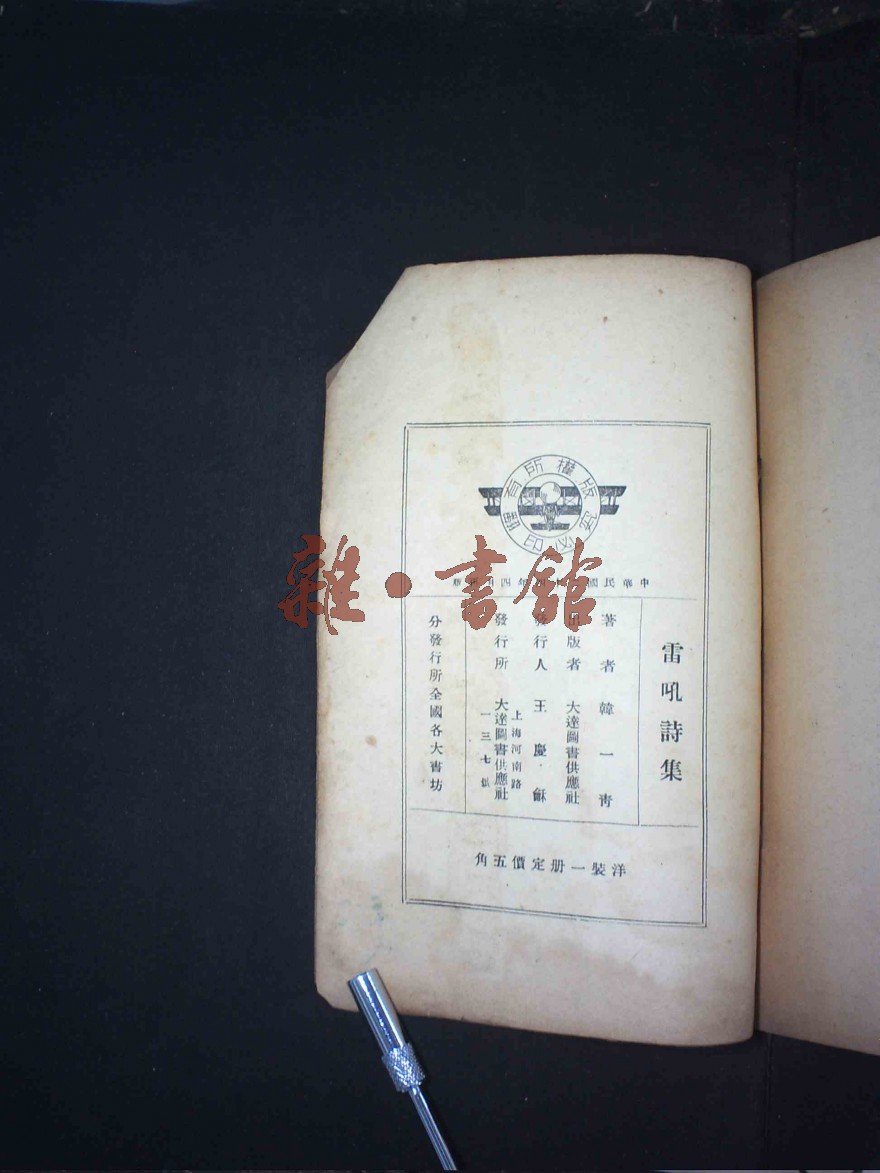 版權所有
翻印必究
中華民國 年四月
雷吼詩集
著者 韓一青
出版者 大達圖書供應社
發行人 王慶龢
發行所 大達圖書供應社
上海河南路
一三七號
分發行所全國各大書坊
洋裝一册定價五角
雜·書館